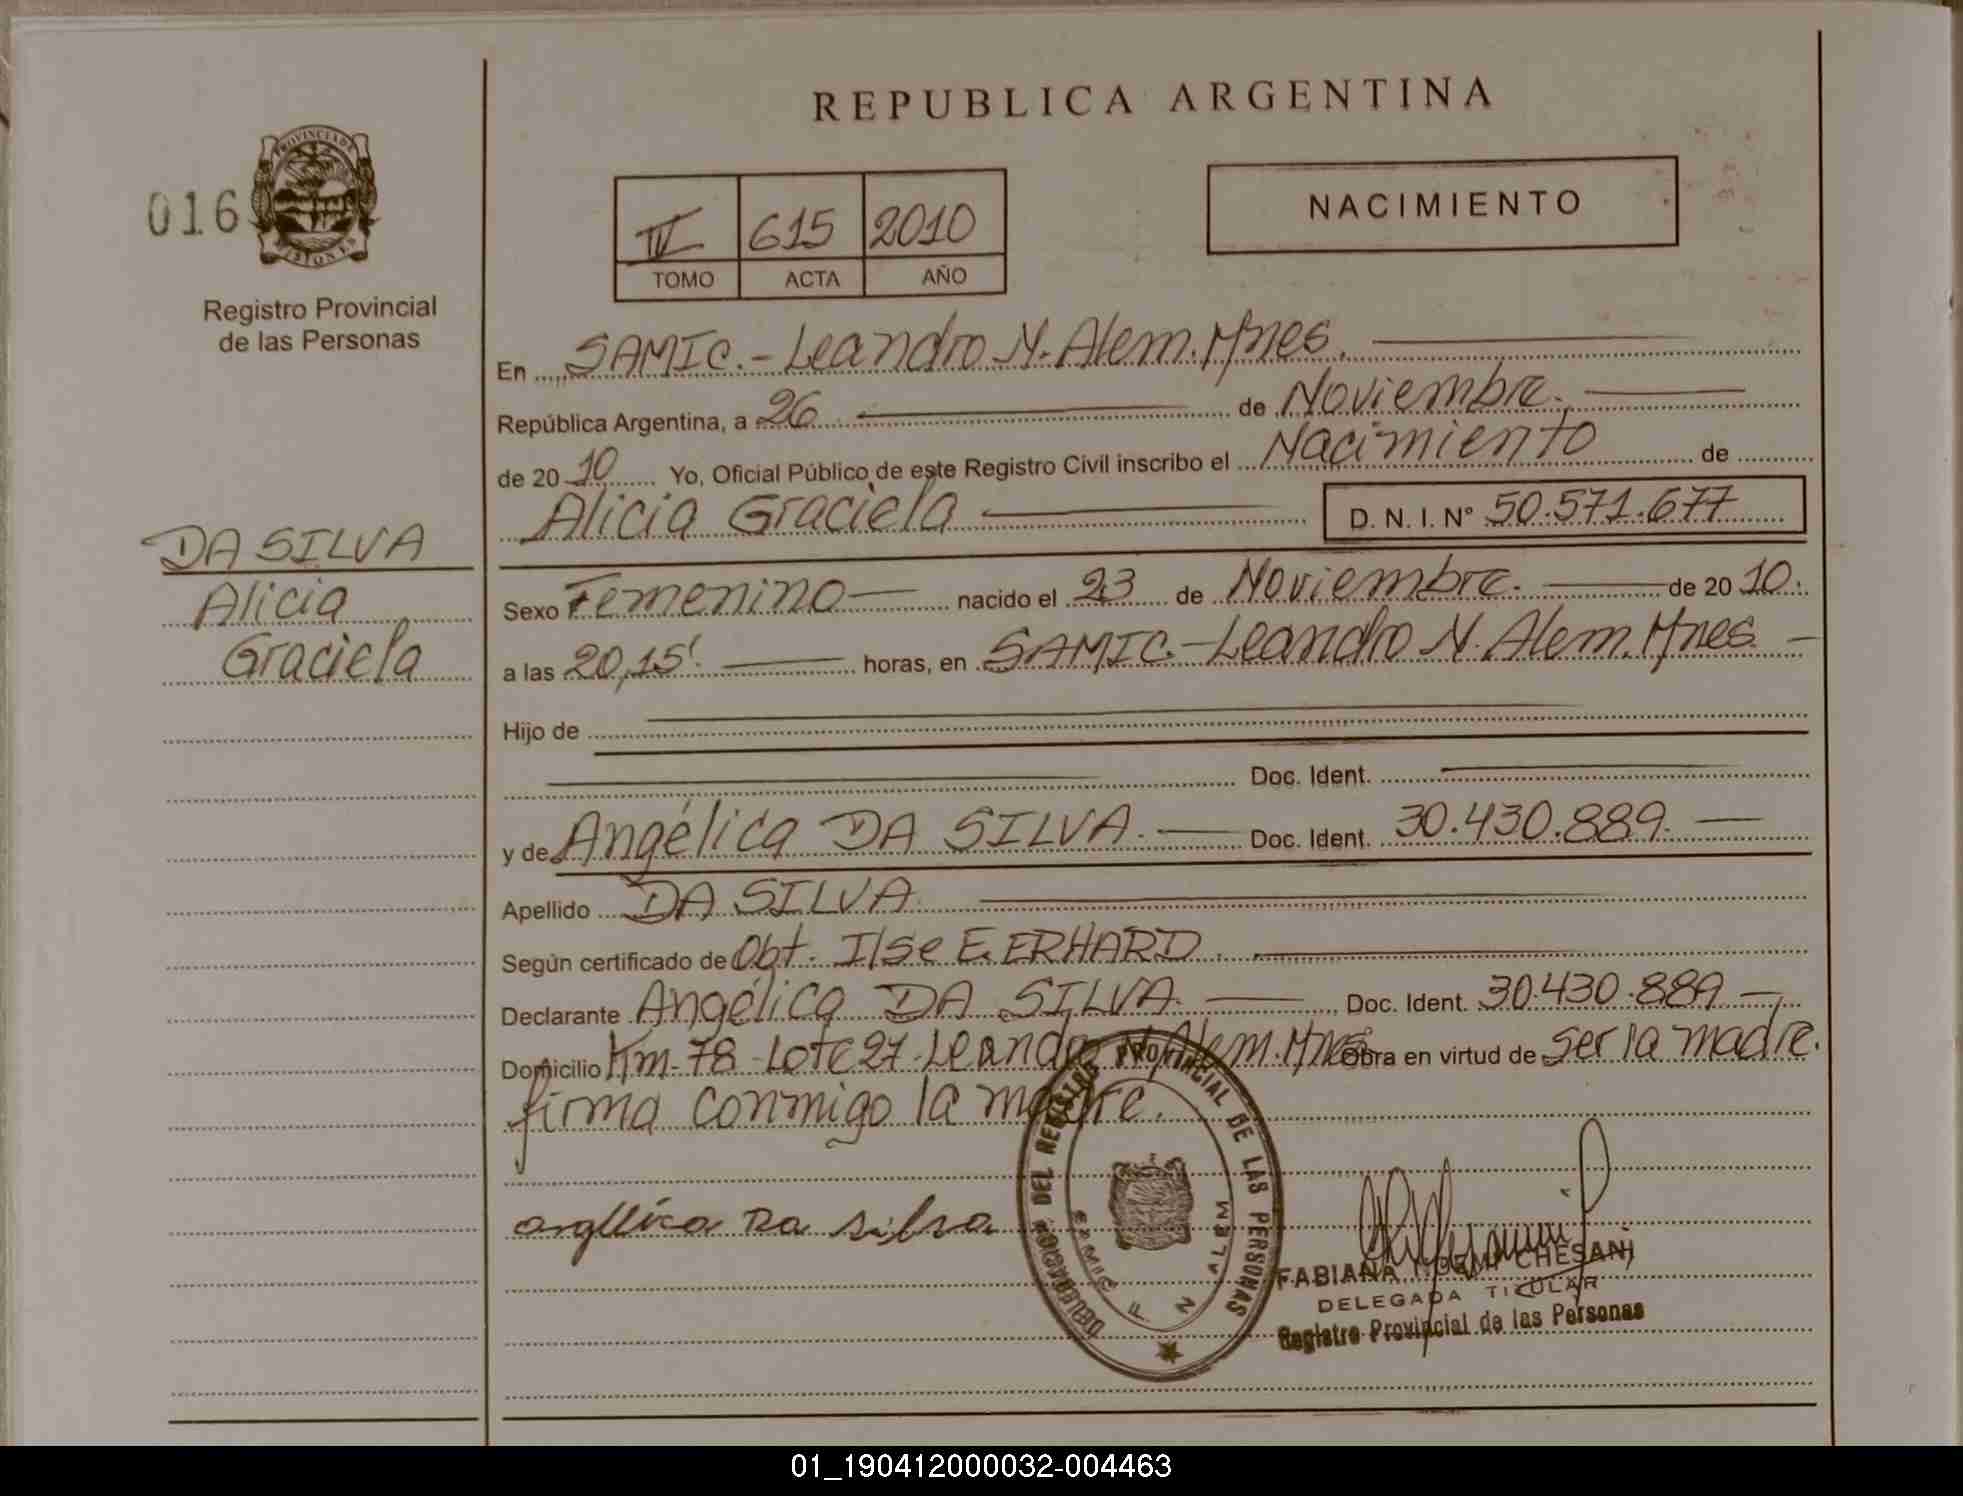 REPUBLICA ARGENTINA
016
PROVINCIA DE MISIONES
Registro Provincial
de las Personas
IV 615 2010
TOMO ACTA AÑO
NACIMIENTO
DA SILVA
Alicia
Graciela
En SAMIC.- Leandro N. Alem. Mnes.
República Argentina, a 26 de Noviembre.
de 20 10 Yo, Oficial Público de este Registro Civil inscribo el Nacimiento de
Alicia Graciela D. N. I. N° 50.571.677
Sexo Femenino nacido el 23 de Noviembre. de 20 10.
a las 20,15'. horas, en SAMIC.-Leandro N. Alem. Mnes.
Hijo de
Doc. Ident.
y de Angélica DA SILVA. Doc. Ident. 30.430.889.
Apellido DA SILVA
Según certificado de Obt. Ilse E. ERHARD
Declarante Angélica DA SILVA. Doc. Ident. 30.430.889
Domicilio Km-78-Lote 27-Leandro N. Alem. Mnes Obra en virtud de ser la madre.
firma conmigo la madre.
DELEGACION DEL REGISTRO PROVINCIAL DE LAS PERSONAS
SAMIC
N ALEM
FABIANA NOEMI CHESANI
DELEGADA TITULAR
Registro Provincial de las Personas
01_190412000032-004463